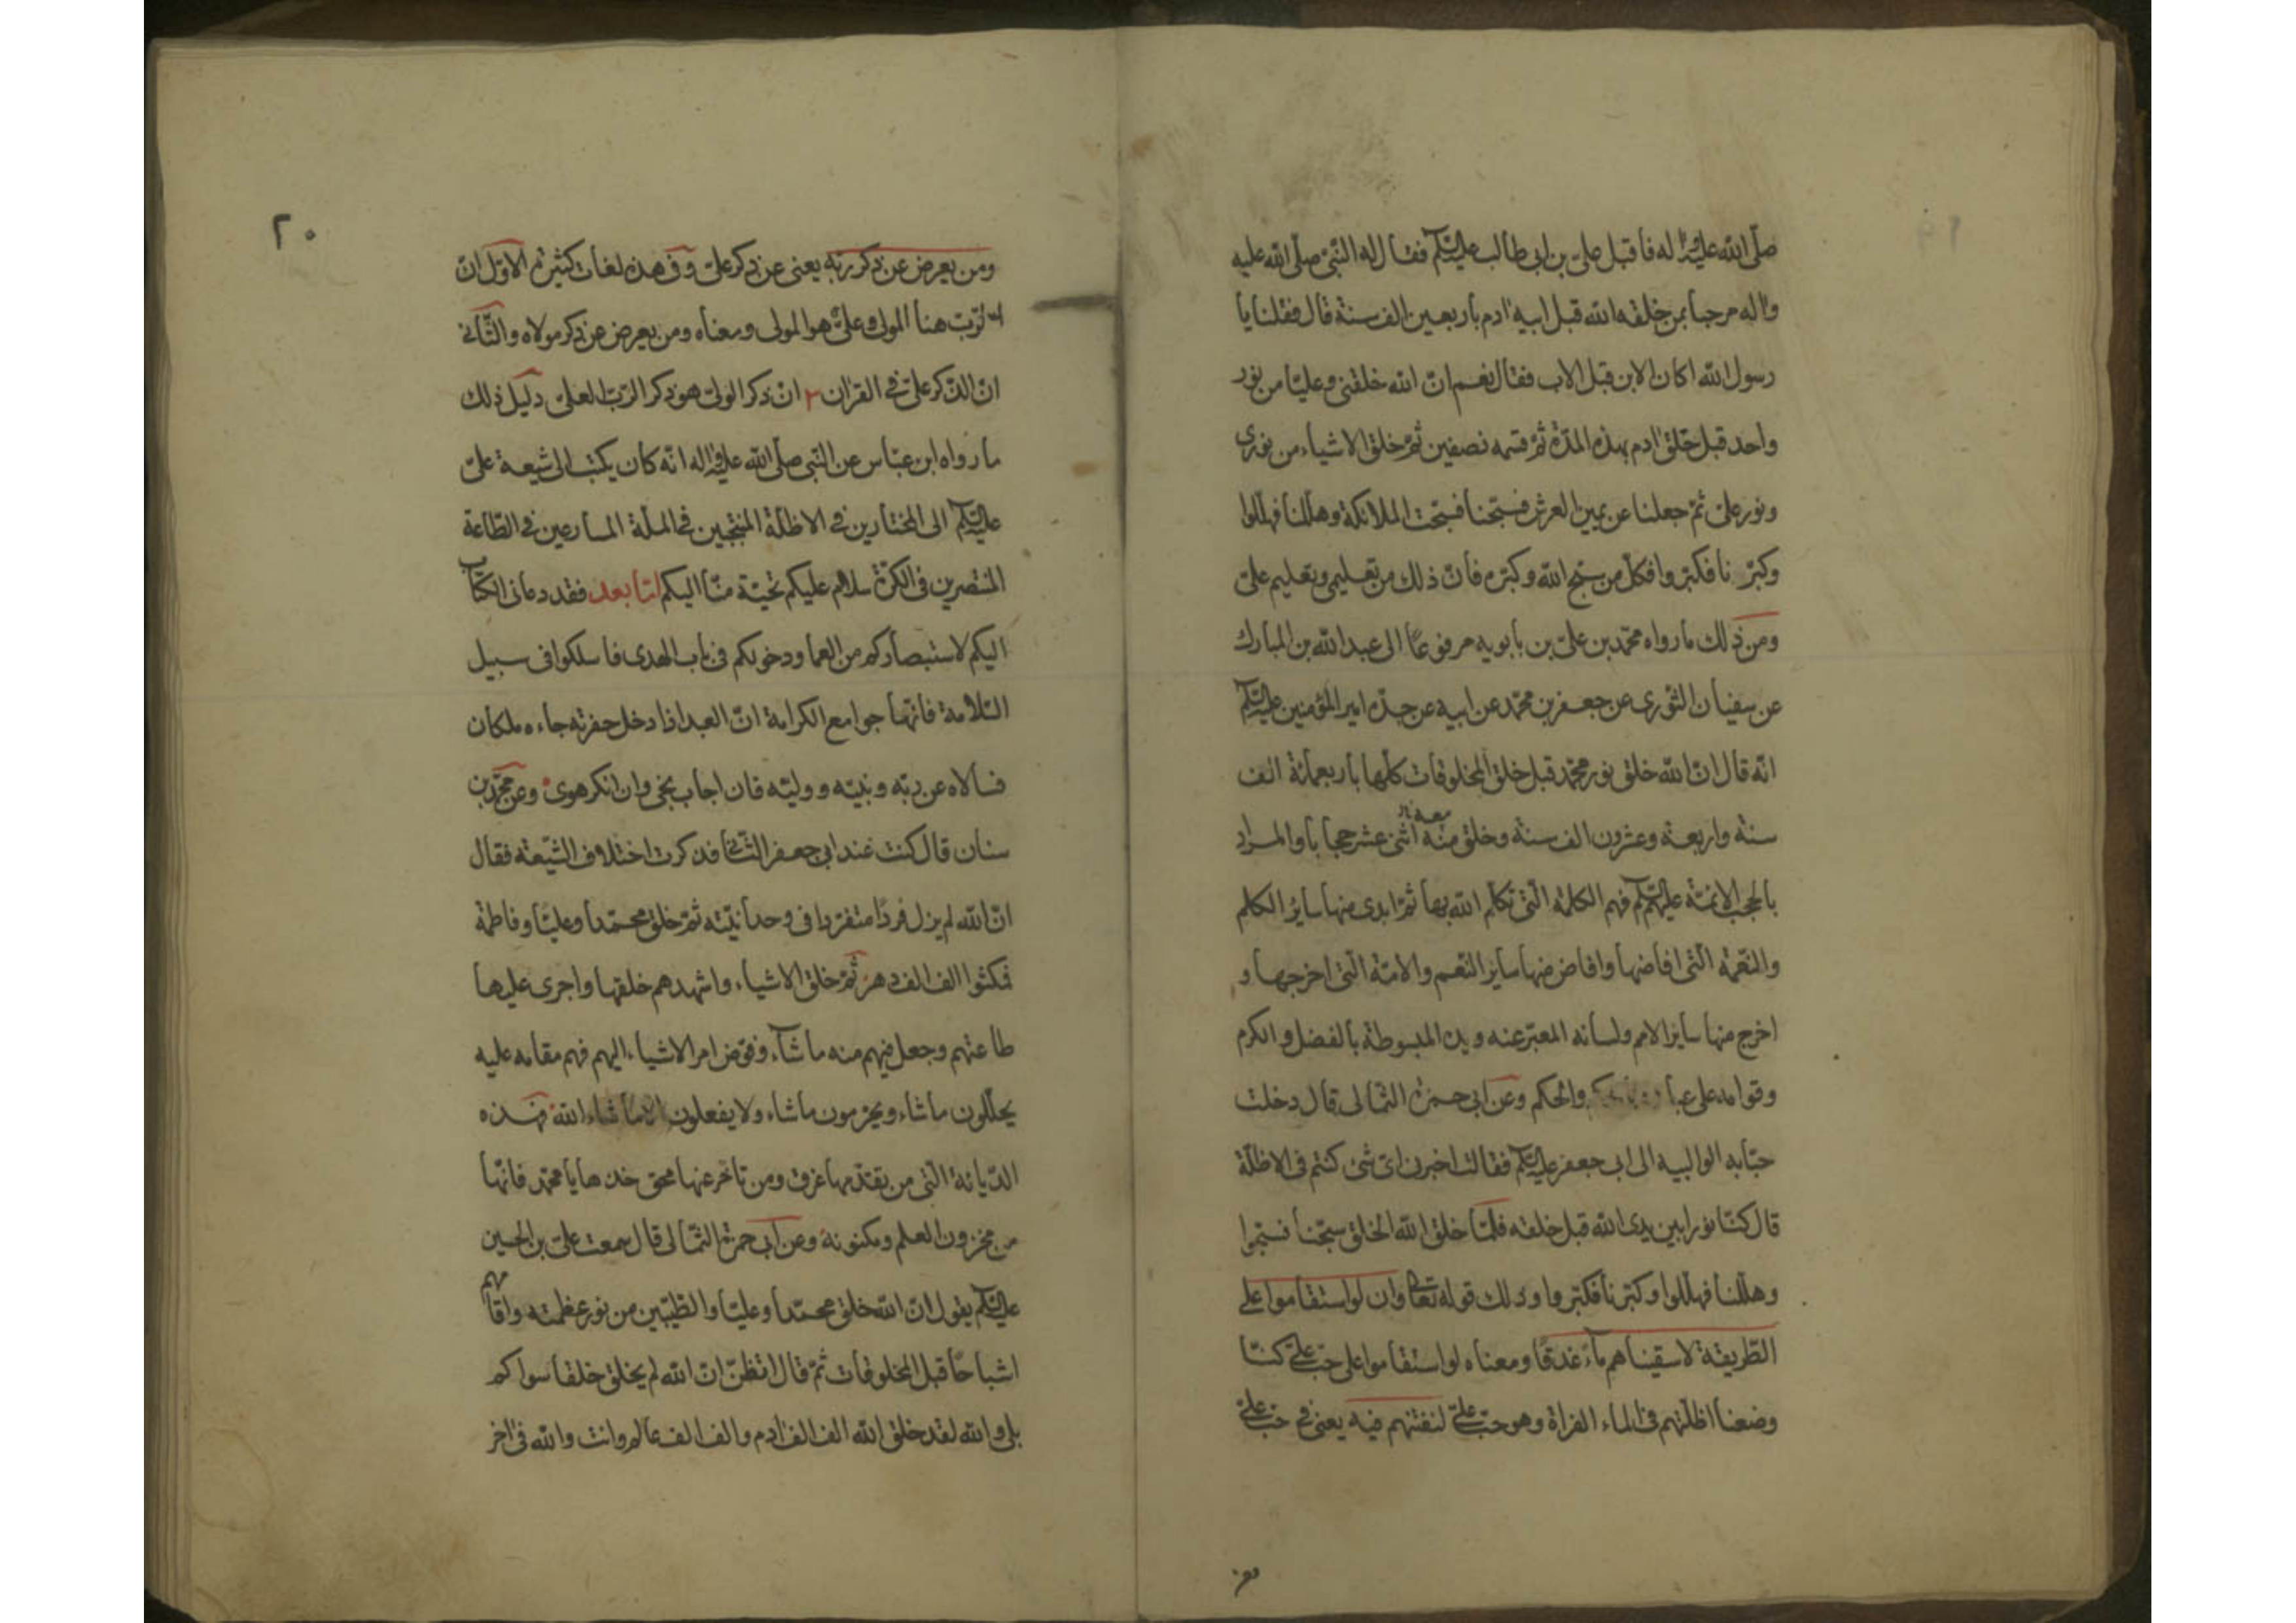 صلّى الله عليه واله فاقبل على بن ابى طالب عليه السلم فقال له النّبىّ صلّى الله عليه
واله مرحبا بمن خلقه الله قبل ابيه ادم باربعين الف سنة قال فقلنا يا
رسول الله اكان الابن قبل الاب فقال نعم انّ الله خلقنى وعليّا من نور
واحد قبل خلق ادم بهذه المدّة ثمّ قسمه نصفين ثمّ خلق الاشياء من نورى
ونور علىّ ثمّ جعلنا عن يمين العرش فسبّحنا فسبّحت الملائكة وهلّلنا فهلّلوا
وكبّرنا فكبّروا فكلّ من سبّح الله وكبّره فانّ ذلك من تعليمى وتعليم علىّ
ومن ذلك ما رواه محمّد بن علىّ بن بابويه مرفوعًا الى عبد الله بن المبارك
عن سفيان الثّورى عن جعفر بن محمّد عن ابيه عن جدّه امير المؤمنين عليه السلم
انّه قال انّ الله خلق نور محمّد قبل خلق المخلوقات كلّها باربعمائة الف
سنة واربعة وعشرون الف سنة وخلق منه اثنى عشر حجابا والمراد
بالحجب الائمّة عليهم السلم فهم الكلمة الّتى تكلّم الله بها ثمّ ابدى منها ساير الكلم
والنّعمة الّتى افاضها وافاض منها ساير النّعم والامّة الّتى اخرجها و
اخرج منها ساير الامم ولسانه المعبّر عنه ويده المبسوطة بالفضل والكرم
وقوامه على عباده والحكم وعن ابى حمزة الثّمالى قال دخلت
حبّابه الوالبيه الى ابى جعفر عليه السلم فقالت اخبرنى اىّ شئ كنتم فى الاظلّة
قال كنّا نورا بين يدى الله قبل خلقه فلمّا خلق الله الخلق سبّحنا فسبّحوا
وهلّلنا فهلّلوا وكبّرنا فكبّروا وذلك قوله تعالى وان لو استقاموا على
الطّريقة لاسقيناهم ماءً غدقًا ومعناه لو استقاموا على حبّ علىّ كنّا
وضعنا اظلّتهم فى الماء الفراة وهو حبّ علىّ لنفتنهم فيه يعنى فى حبّ علىّ
ومن
٢٠
ومن يعرض عن ذكر ربّه يعنى عن ذكر علىّ وفى هذه لغات كثيرة الاوّل انّ
الرّبّ هنا المولى وعلىّ هو المولى ومعناه ومن يعرض عن ذكر مولاه والثّانى
انّ الذّكر علىّ فى القران ٣ انّ ذكر الولىّ هو ذكر الرّبّ العلىّ دليل ذلك
ما رواه ابن عبّاس عن النّبى صلّى الله عليه واله انّه كان يكتب الى شيعة علىّ
عليه السلم الى المختارين فى الاظلّة المنتجبين فى الملّة المسارعين فى الطّاعة
المنتصرين فى الكرّة سلام عليكم تحيّة منّا اليكم امّا بعد فقد دعانى الكتاب
اليكم لاستبصاركم من العما ودخولكم فى باب الهدى فاسلكوا فى سبيل
السّلامة فانّها جوامع الكرامة انّ العبد اذا دخل حفرته جاءه ملكان
فسالاه عن ربّه ونبيّه ووليّه فان اجاب نجى وان انكر هوى وعن محمّد بن
سنان قال كنت عند ابى جعفر الثّانى فذكرت اختلاف الشّيعة فقال
انّ الله لم يزل فردًا متفرّدا فى وحدانيّته ثمّ خلق محمّدا وعليّا وفاطمة
فمكثوا الف الف دهر ثمّ خلق الاشياء واشهدهم خلقها واجرى عليها
طاعتهم وجعل فيهم منه ما شآء وفوّض امر الاشياء اليهم فهم مقامه عليه
يحلّلون ماشاء ويحرّمون ماشاء ولا يفعلون الا ما شاء الله فهذه
الدّيانة الّتى من يقدّمها غرق ومن تاخّر عنها محق خذها يا محمّد فانّها
من مخزون العلم ومكنونه وعن ابى حمزة الثّمالى قال سمعت علىّ بن الحسين
عليه السلم يقول انّ الله خلق محمّدا وعليّا والطّيّبين من نور عظمته واقامهم
اشباحًا قبل المخلوقات ثمّ قال اتظنّ انّ الله لم يخلق خلقا سواكم
بلى والله لقد خلق الله الف الف ادم والف الف عالم وانت والله فى اخر